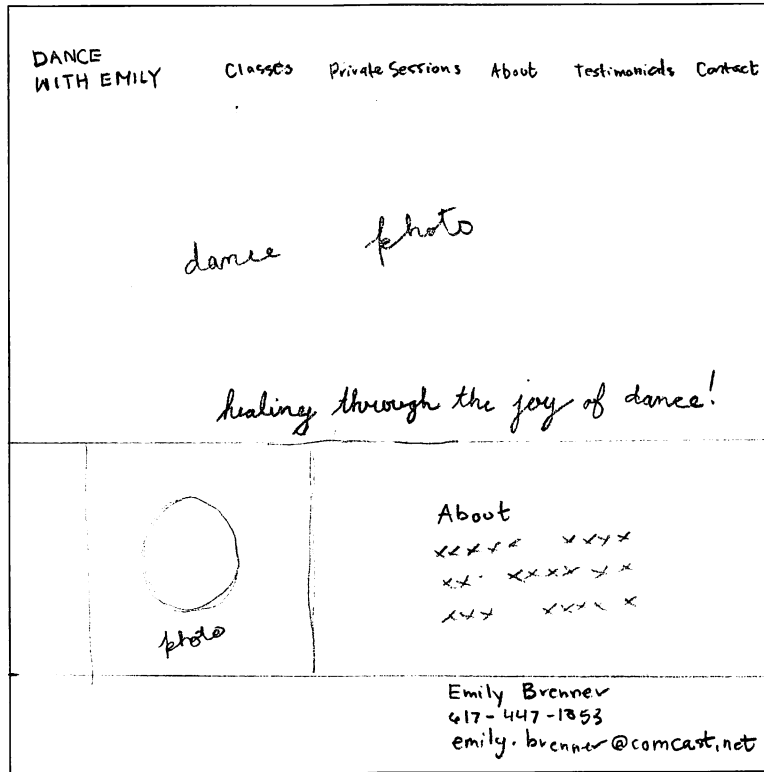 DANCE
WITH EMILY
Classes Private Sessions About Testimonials Contact
dance photo
healing through the joy of dance!
About
xxxxx xxxx
xx. xxxx x x
xxx xxxx x
photo
Emily Brenner
617-447-1853
emily.brenner@comcast.net